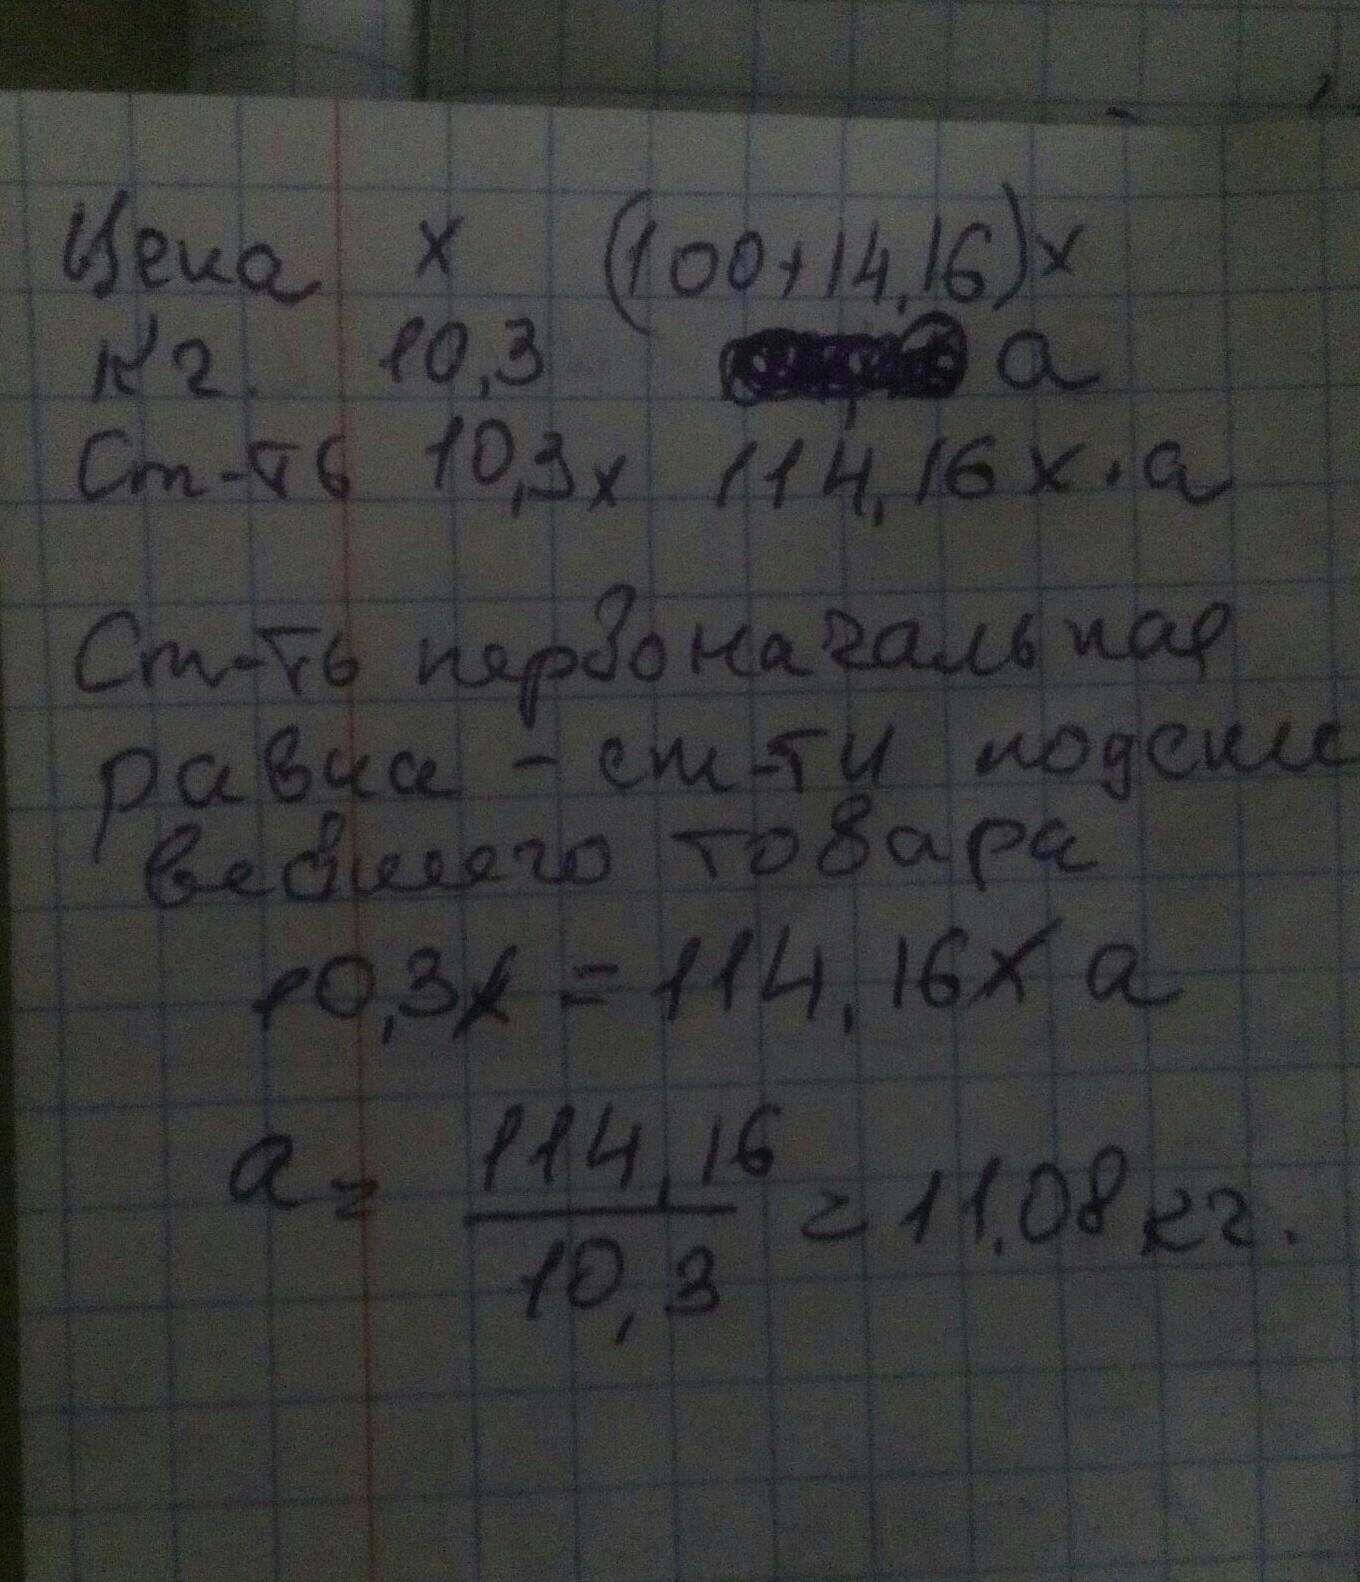 Цена x (100+14,16)x
Кг. 10,3 а
Ст-ть 10,3x 114,16x·а
Ст-ть первоначальная
равна - ст-ти подеше
ведшего товара
10,3x = 114,16x а
а = 114,16 / 10,3 = 11,08 кг.